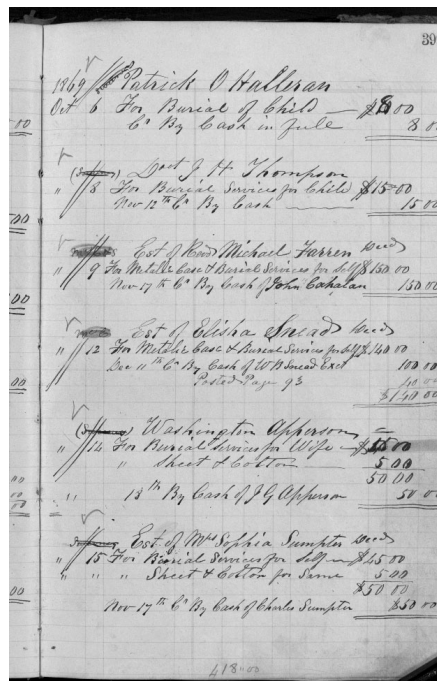 39
1869 Patrick O Halleran
Oct 6 For Burial of Child — $8.00
Cr By Cash in full 8 0
Doct J H Thompson
" 8 For Burial Services for Child $15.00
Nov 12th Cr By Cash 15 00
Est of Michael Farren Decd
" 9 For Metalic Case & Burial Services for Self $150 00
Nov 17th Cr By Cash of John Cahalan 150 00
Est of Elisha Snead Decd
" 12 For Metalic Case & Burial Services for Self $140 00
Dec 11th Cr By Cash of W B Snead Exct 100 00
Posted Page 93 40 00
$140.00
Washington Apperson
" 14 For Burial Services for Wife — $45 00
" Sheet & Cotton — 5.00
50 00
" 13th By Cash of J G Apperson 50 0
Est. of Mrs Sophia Sumpter Decd
" 15 For Burial Services for Self — $45 00
" " " Sheet & Cotton for Same 5.00
$50 00
Nov 17th Cr By Cash of Charles Sumpter $50 00
418.00